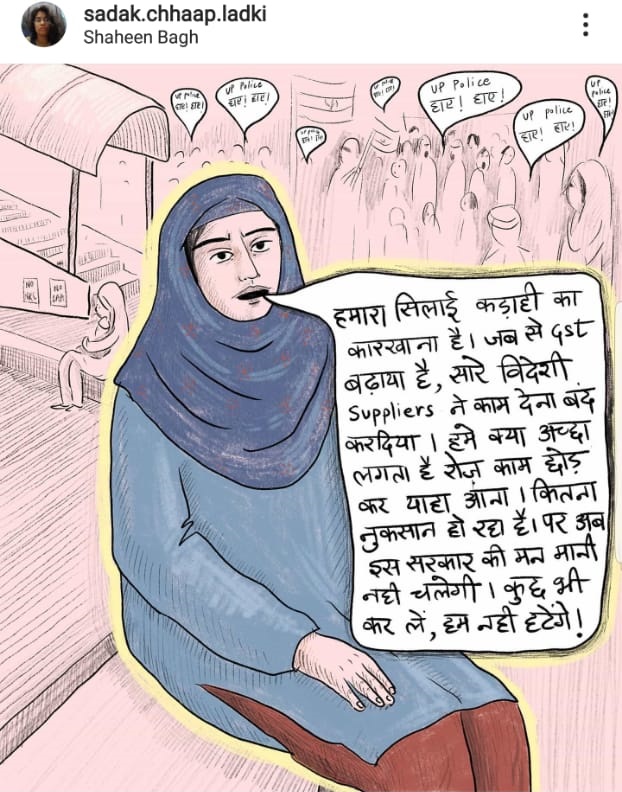 sadak.chhaap.ladki
Shaheen Bagh
UP Police
हाए! हाए!
UP Police
हाए! हाए!
UP Police
हाए! हाए!
UP police
हाए! हाए!
UP
Police
हाए!
NO
NRC
NO
CAA
हमारा सिलाई कड़ाही का
कारखाना है। जब से GST
बढ़ाया है, सारे विदेशी
Suppliers ने काम देना बंद
करदिया। हमे क्या अच्छा
लगता है रोज़ काम छोड़
कर याहा आना। कितना
नुकसान हो रहा है। पर अब
इस सरकार की मन मानी
नही चलेगी। कुछ भी
कर लें, हम नही हटेंगे!